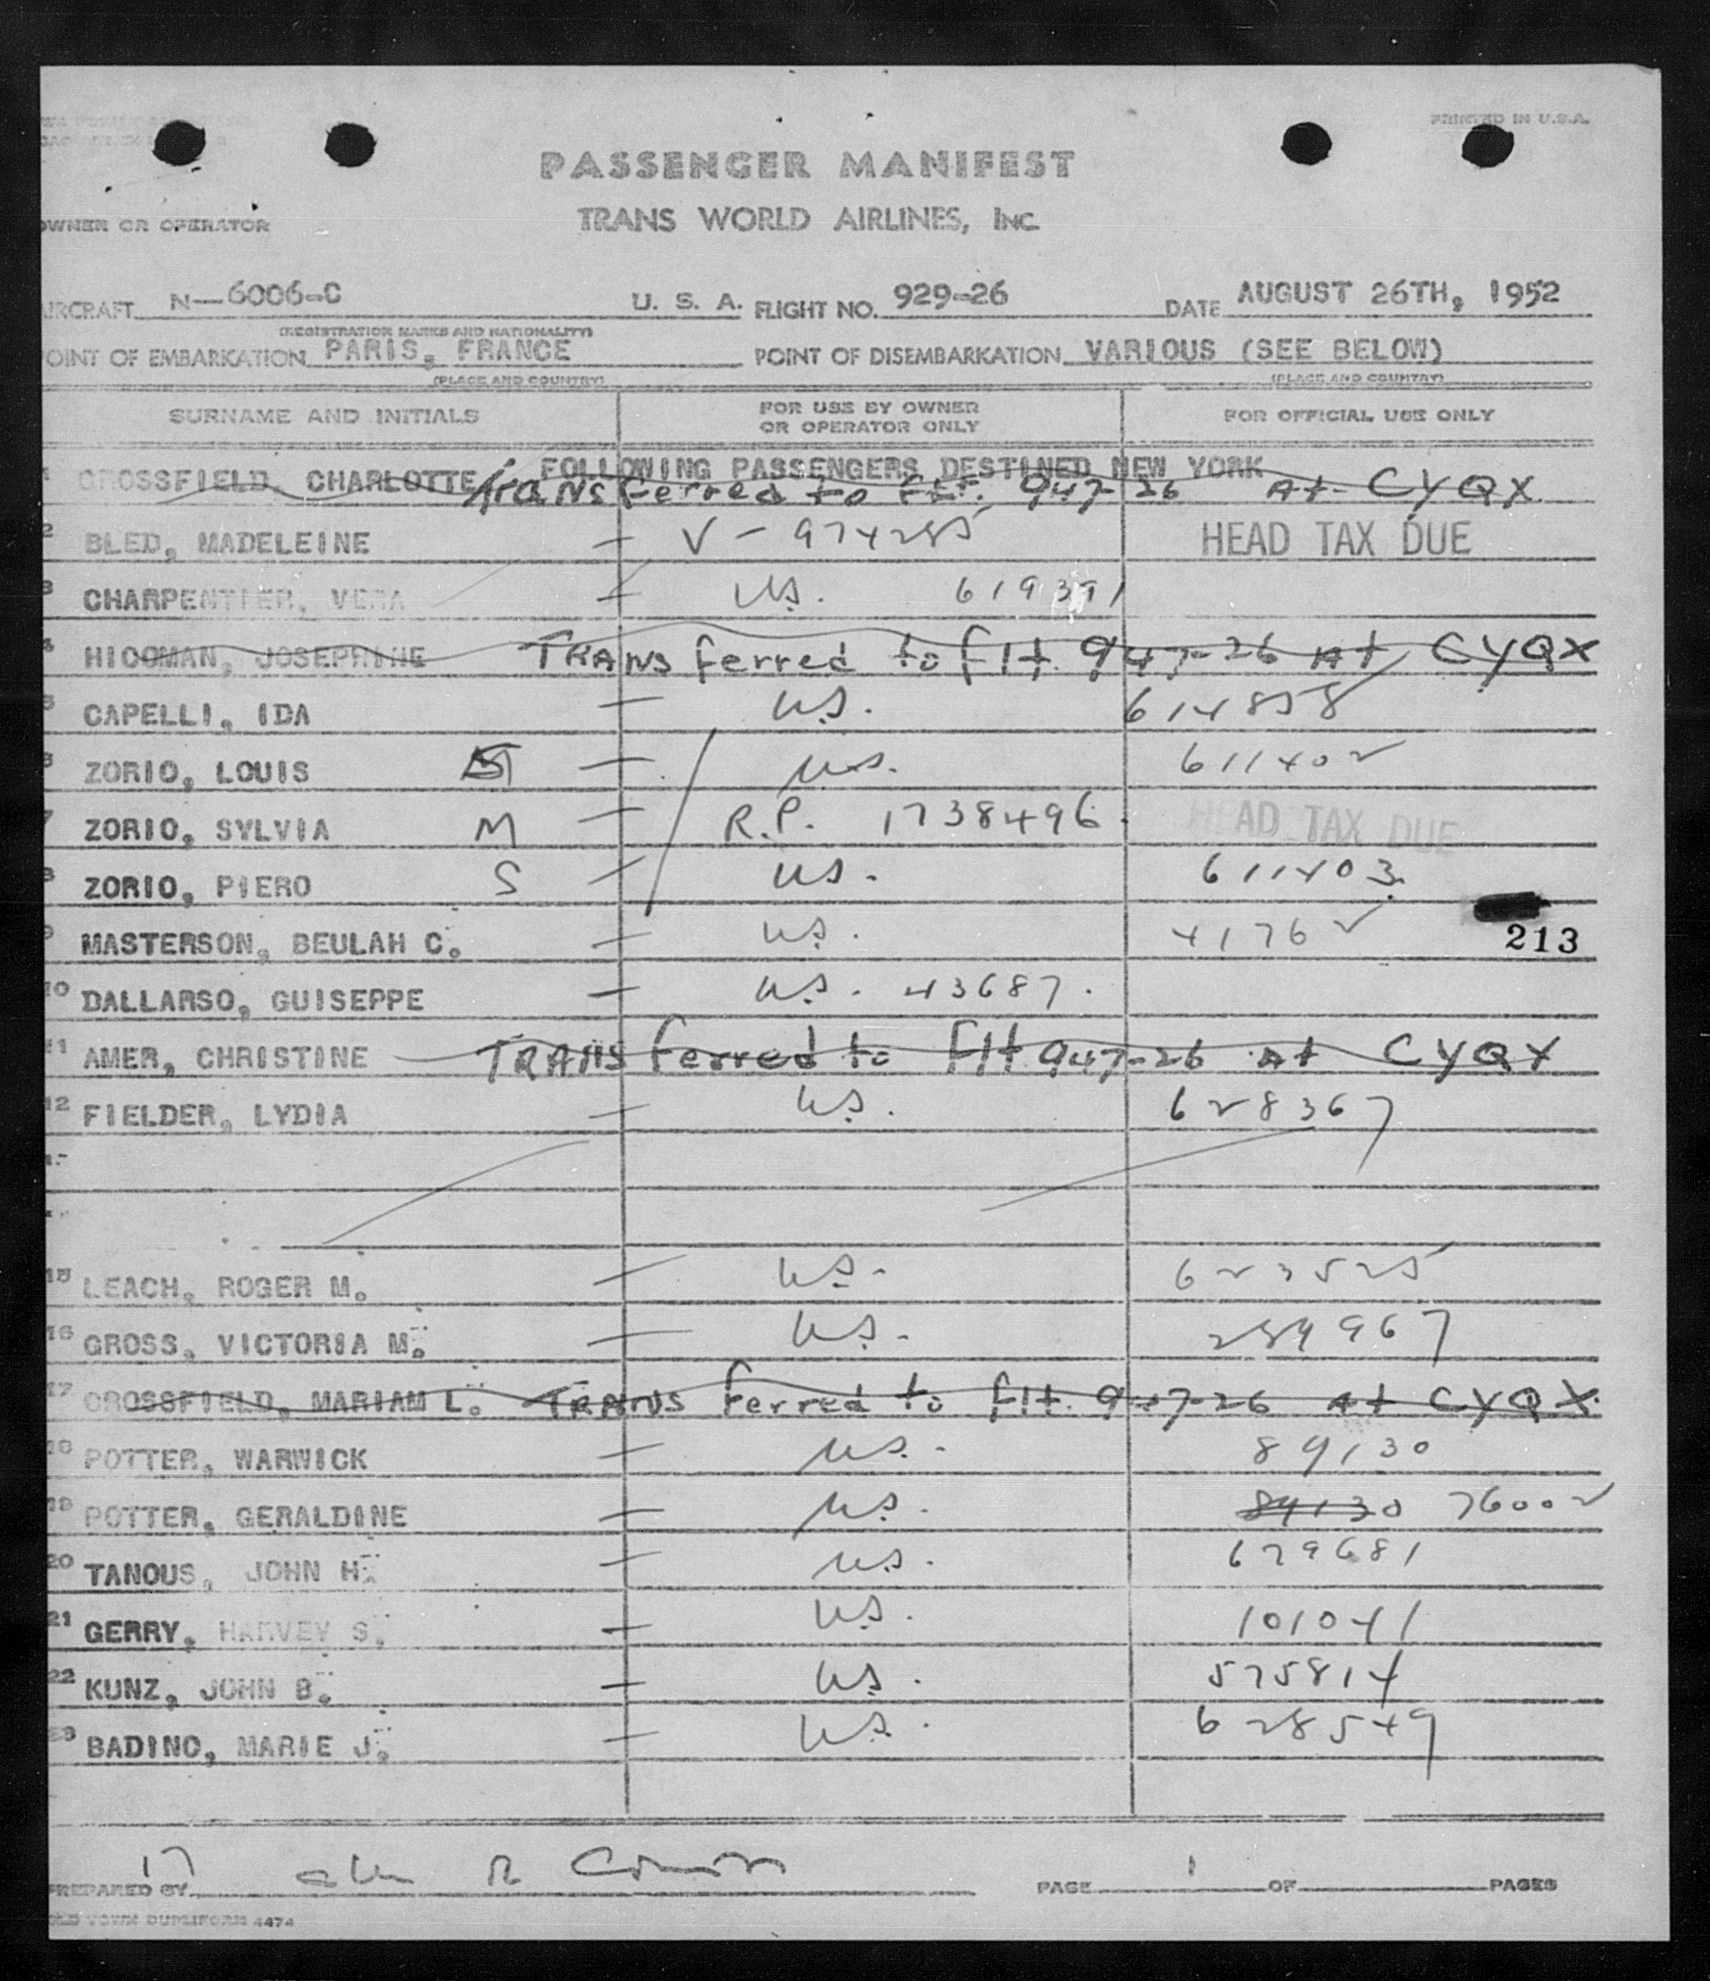 PRINTED IN U.S.A.
PASSENGER MANIFEST
OWNER OR OPERATOR TRANS WORLD AIRLINES, INC.
AIRCRAFT N-6006-C U. S. A. FLIGHT NO. 929-26 DATE AUGUST 26TH, 1952
(REGISTRATION MARKS AND NATIONALITY)
POINT OF EMBARKATION PARIS, FRANCE POINT OF DISEMBARKATION VARIOUS (SEE BELOW)
(PLACE AND COUNTRY) (PLACE AND COUNTRY)
SURNAME AND INITIALS FOR USE BY OWNER OR OPERATOR ONLY FOR OFFICIAL USE ONLY
FOLLOWING PASSENGERS DESTINED NEW YORK
1 CROSSFIELD, CHARLOTTE Transferred to Flt. 947-26 At CYQX
2 BLED, MADELEINE — V-974285 HEAD TAX DUE
3 CHARPENTIER, VERA — U.S. 619391
4 HICOMAN, JOSEPHINE Transferred to Flt. 947-26 At CYQX
5 CAPELLI, IDA — U.S. 614858
6 ZORIO, LOUIS — U.S. 611402
7 ZORIO, SYLVIA M — R.P. 1738496. HEAD TAX DUE
8 ZORIO, PIERO S — U.S. 611403
9 MASTERSON, BEULAH C. — U.S. 41762 213
10 DALLARSO, GUISEPPE — U.S. 43687.
11 AMER, CHRISTINE Transferred to Flt 947-26 At CYQX
12 FIELDER, LYDIA — U.S. 628367
15 LEACH, ROGER M. — U.S. 623525
16 GROSS, VICTORIA M. — U.S. 284967
17 CROSSFIELD, MARIAM L. Transferred to Flt. 947-26 At CYQX
18 POTTER, WARWICK — U.S. 89130
19 POTTER, GERALDINE — U.S. 89130 76002
20 TANOUS, JOHN H. — U.S. 629681
21 GERRY, HARVEY S. — U.S. 101041
22 KUNZ, JOHN B. — U.S. 575814
23 BADINO, MARIE J. — U.S. 628549
17
PREPARED BY PAGE 1 OF PAGES
4474